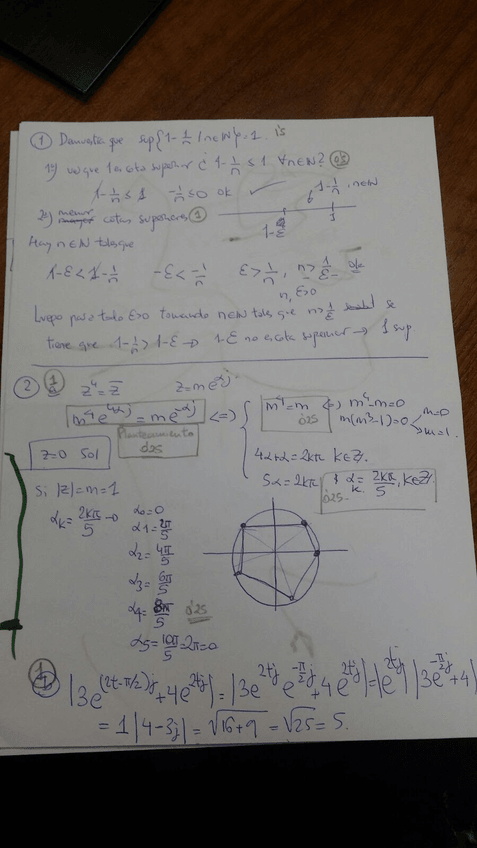 ① Demuestra que sup{1-1/n / n∈ℕ}=1.
1º) 1 cota superior ¿ 1-1/n ≤ 1 ∀n∈ℕ?
1-1/n ≤ 1 -1/n ≤ 0 ok ✓
2º) menor cotas superiores ①
1-1/n, n∈ℕ
1-ε 1
Hay n∈ℕ tal que
1-ε < 1-1/n -ε < -1/n ε > 1/n, n > 1/ε ok
n, ε>0
Luego para todo ε>0 tomando n∈ℕ tal que n>1/ε se
tiene que 1-1/n > 1-ε → 1-ε no es cota superior → 1 sup
② 1 z⁴ = z̄ z = m e^{αj}
m⁴e^{4αj} = m e^{-αj} ⇔ { m⁴=m ⇔ m⁴-m=0
Planteamiento
0'25
0'25
m(m³-1)=0 m=0
m=1.
z=0 sol
4α+α=2kπ k∈ℤ.
5α=2kπ αk = 2kπ/5, k∈ℤ
0'25
Si |z|=m=1
αk = 2kπ/5 → α0=0
α1=2π/5
α2=4π/5
α3=6π/5
α4=8π/5 0'25
α5=10π/5=2π=0
1
|3e^{(2t-π/2)j}+4e^{2tj}| = |3e^{2tj} e^{-π/2 j}+4e^{2tj}| = |e^{2tj}| |3e^{-π/2 j}+4|
= 1|4-3j| = √16+9 = √25 = 5.